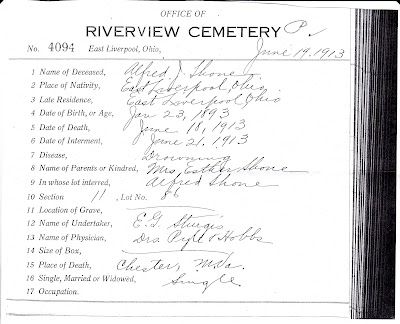 OFFICE OF
RIVERVIEW CEMETERY P.
No. 4094 East Liverpool, Ohio, June 19. 1913
1 Name of Deceased, Alfred J. Shone
2 Place of Nativity, East Liverpool, Ohio.
3 Late Residence, East Liverpool, Ohio
4 Date of Birth, or Age, Jan 23, 1893
5 Date of Death, June 18, 1913
6 Date of Interment, June 21, 1913
7 Disease, Drowning
8 Name of Parents or Kindred, Mrs. Esther Shone
9 In whose lot interred, Alfred Shone
10 Section 11, Lot No. 86
11 Location of Grave,
12 Name of Undertaker, E. G. Sturgis
13 Name of Physician, Drs. Pyle & Hobbs
14 Size of Box,
15 Place of Death, Chester, W.Va.
16 Single, Married or Widowed, Single
17 Occupation.